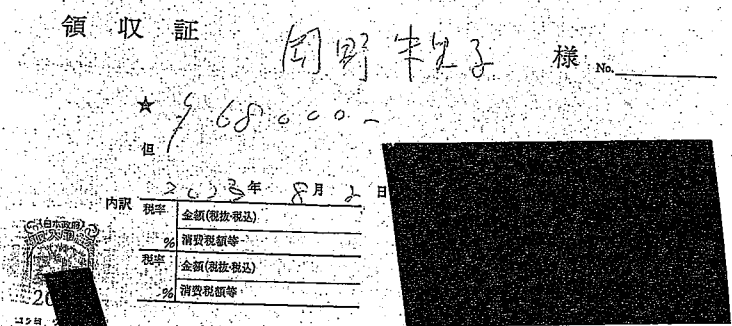 領収証
岡野 様 No.
★ ¥68000-
但
2023年 8月2日
内訳
税率 金額(税抜・税込)
% 消費税額等
税率 金額(税抜・税込)
% 消費税額等
日本政府